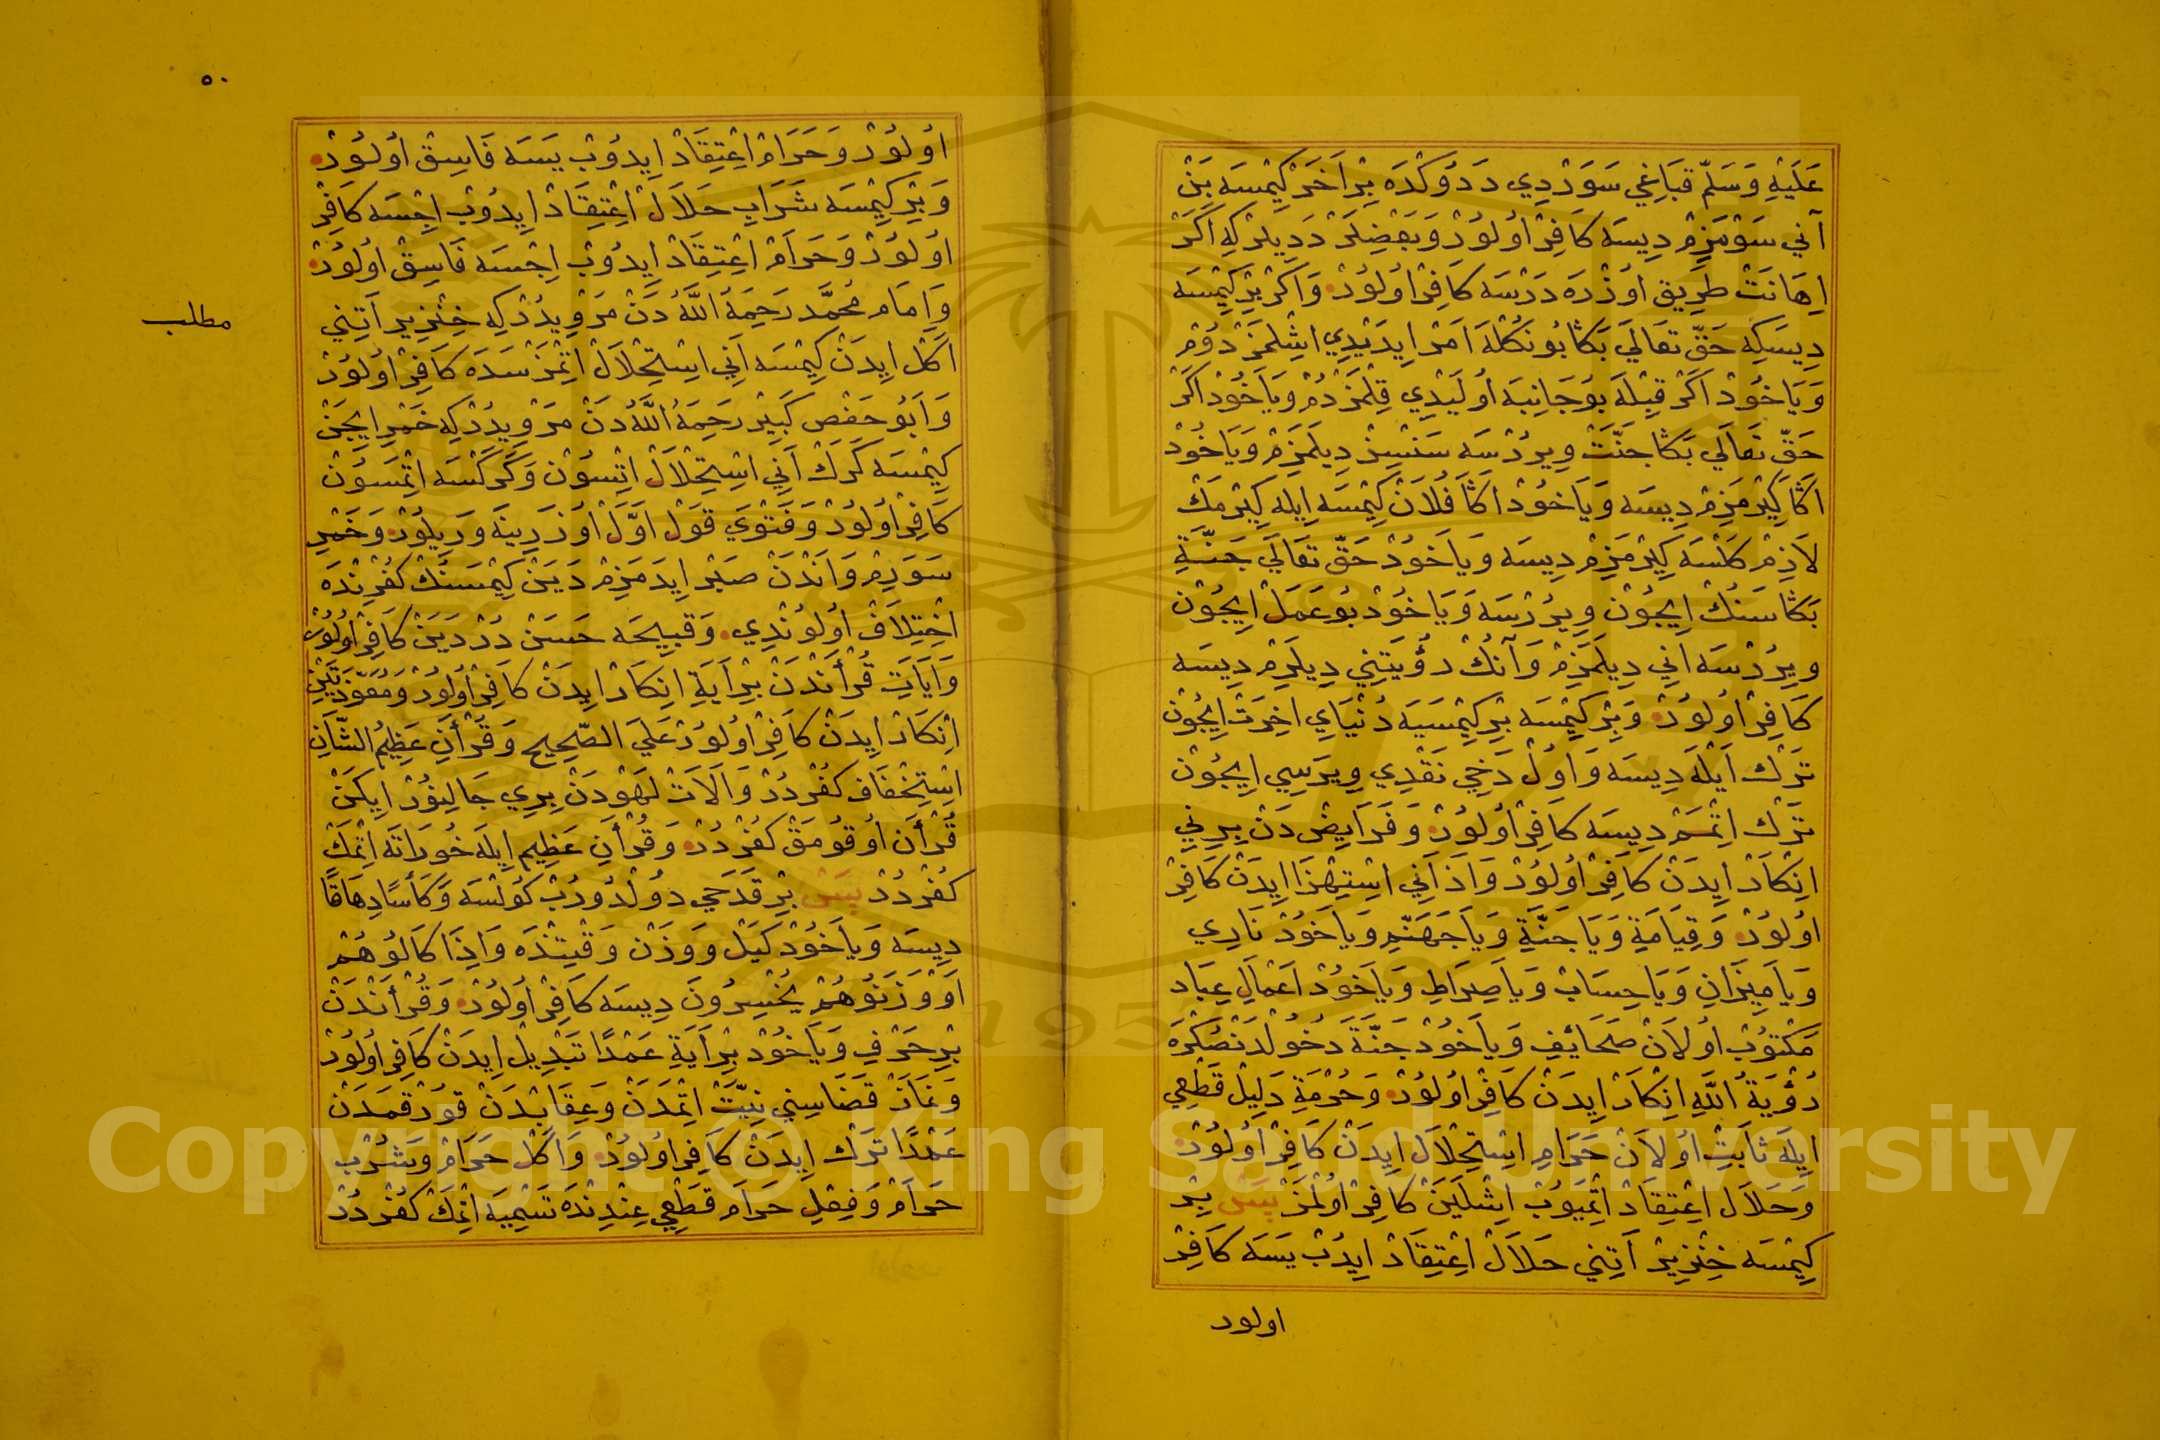 عَلَيْهِ وَسَلَّمْ قَبَاغِي سَوَرْدِي دَدُوكْدَه بِرْ اَخَرْ كِيْمْسَه بَنْ
اَنِي سَوْمَزِمْ دِيسَه كَافِرْ اُولُورْ وَبَعْضِلَرْ دَدِيلَرْكِه اَكَرْ
اِهَانَتْ طَرِيقِ اُوزْرَه دَرْسَه كَافِرْ اُولُورْ وَاَكَرْ بِرْ كِيْمْسَه
دِيسَكِه حَقّ تَعَالَي بَكَا بُونُكْلَه اَمْرْ اِيدَيْدِي اِشْلَمَزْدُومْ
وَيَاخُودْ اَكَرْ قِبْلَه بُوجَانِبَه اُولَيْدِي قِلْمَزْدُمْ وَيَاخُودْ اَكَرْ
حَقّ تَعَالَي بَكَا جَنَّتْ وِيرُرْسَه سَنْسِزْ دِيلَمَزِمْ وَيَاخُودْ
اَكَا كِيرْمَزِمْ دِيسَه وَيَاخُودْ اَكَا فُلَانْ كِيْمْسَه اِيلَه كِيرْمَكْ
لَازِمْ كَلْسَه كِيرْمَزِمْ دِيسَه وَيَاخُودْ حَقّ تَعَالَي جَنَّةِ
بَكَا سَنُكْ اِيچُونْ وِيرُرْسَه وَيَاخُودْ بُوعَمَلْ اِيچُونْ
وِيرُرْسَه اَنِي دِيلَمَزِمْ وَاَنُكْ رُؤْيَتِنِي دِيلَرِمْ دِيسَه
كَافِرْ اُولُورْ وَبِرْ كِيْمْسَه بِرْ كِيْمْسَيَه دُنْيَايِ اَخِرَتْ اِيچُونْ
تَرْكْ اَيْلَه دِيسَه وَاُولْ دَخِي نَقْدِي وِيرَسِي اِيچُونْ
تَرْكْ اِتْمَمْ دِيسَه كَافِرْ اُولُورْ وَفَرَايِضْ دَنْ بِرِنِي
اِنْكَارْ اِيدَنْ كَافِرْ اُولُورْ وَاَذَانِي اِسْتِهْزَا اِيدَنْ كَافِرْ
اُولُورْ وَقِيَامَةِ وَيَا جَنَّةِ وَيَا جَهَنَّمِ وَيَاخُودْ نَارِي
وَيَا مِيزَانِ وَيَا حِسَابْ وَيَا صِرَاطِ وَيَاخُودْ اَعْمَالِ عِبَاد
مَكْتُوبْ اُولَانْ صَحَائِفِ وَيَاخُودْ جَنَّةَ دُخُولْدَنْصُكْرَه
رُؤْيَةُ اللَّهِ اِنْكَارْ اِيدَنْ كَافِرْ اُولُورْ وَحُرْمَةِ دَلِيلْ قَطْعِي
اِيلَه ثَابِتْ اُولَانْ حَرَامِ اِسْتِحْلَالِ اِيدَنْ كَافِرْ اُولُورْ
وَحَلَالِ اِعْتِقَادْ اِتْمَيُوبْ اِشْلَيَنْ كَافِرْ اُولْمَزْ پَسْ بِرْ
كِيْمْسَه خِنْزِيرْ اَتِنِي حَلَالْ اِعْتِقَادْ اِيدُبْ يَسَه كَافِرْ
اولور
٥٠
اُولُورْ وَحَرَامْ اِعْتِقَادْ اِيدُوبْ يَسَه فَاسِقْ اُولُورْ
وَبِرْ كِيْمْسَه شَرَابِ حَلَالْ اِعْتِقَادْ اِيدُوبْ اِچْسَه كَافِرْ
اُولُورْ وَحَرَامْ اِعْتِقَادْ اِيدُوبْ اِچْسَه فَاسِقْ اُولُورْ
وَاِمَام مُحَمَّد رَحِمَهُ اللَّهُ دَنْ مَرْوِيدُرْكِه خِنْزِير اَتِنِي
مطلب
اَكْل اِيدَنْ كِيْمْسَه اَنِي اِسْتِحْلَالْ اِتْمَزْسَدَه كَافِرْ اُولُورْ
وَاَبُو حَفْص كَبِيرْ رَحِمَهُ اللَّهُ دَنْ مَرْوِيدُرْكِه خَمْرِ اِيچَنْ
كِيْمْسَه كَرَكْ اَنِي اِسْتِحْلَالْ اِتْسُونْ وَكَرَكْسَه اِتْمَسُونْ
كَافِرْ اُولُورْ وَفَتْوَي قَوْلْ اَوَّلْ اُوزَرِينَه وَرِيلُورْ وَخَمْرِ
سَوَرِمْ وَاَنْدَنْ صَبْر اِيدَمَزِمْ دَيَنْ كِيْمْسَنُكْ كُفْرِنْدَه
اِخْتِلَافْ اُولُونْدِي وَقَبِيحَه حَسَنْ دُرْ دَيَنْ كَافِرْ اُولُورْ
وَاَيَاتِ قُرْأَنْدَنْ بِرْ اَيَةِ اِنْكَارْ اِيدَنْ كَافِرْ اُولُورْ وَمُعَوَّذَتَيْنِ
اِنْكَارْ اِيدَنْ كَافِرْ اُولُورْ عَلَي الصَّحِيحِ وَقُرْأَنِ عَظِيمُ الشَّانِ
اِسْتِخْفَافْ كُفْرْدُرْ وَاَلَاتْ لَهْوْدَنْ بِرِي چَالِنُورْ اِيكَنْ
قُرْأَنْ اُوقُومَقْ كُفْرْدُرْ وَقُرْأَنِ عَظِيمِ اِيلَه خُورَاتَه اِتْمَكْ
كُفْرْدُرْ پَسْ بِرْ قَدَحِي دُولْدُورُبْ كُولْسَه وَكَأْسًا دِهَاقًا
دِيسَه وَيَاخُودْ كَيْلْ وَوَزَنْ وَقْتِنْدَه وَاِذَا كَالُوهُمْ
اَوْ وَزَنُوهُمْ يُخْسِرُونَ دِيسَه كَافِرْ اُولُورْ وَقُرْأَنْدَنْ
بِرْ حَرْفِ وَيَاخُودْ بِرْ اَيَةِ عَمْدًا تَبْدِيلْ اِيدَنْ كَافِرْ اُولُورْ
وَنَمَازْ قَضَاسِنِي نِيَّتْ اِتْمَدَنْ وَعِقَابِنْدَنْ قُورْقْمَدَنْ
عَمْدًا تَرْكْ اِيدَنْ كَافِرْ اُولُورْ وَاَكْلْ حَرَامْ وَشُرْبِ
حَرَامْ وَفِعْلِ حَرَامِ قَطْعِي عِنْدِنْدَه تَسْمِيَه اِتْمَكْ كُفْرْدُرْ
Copyright © King Saud University
1957